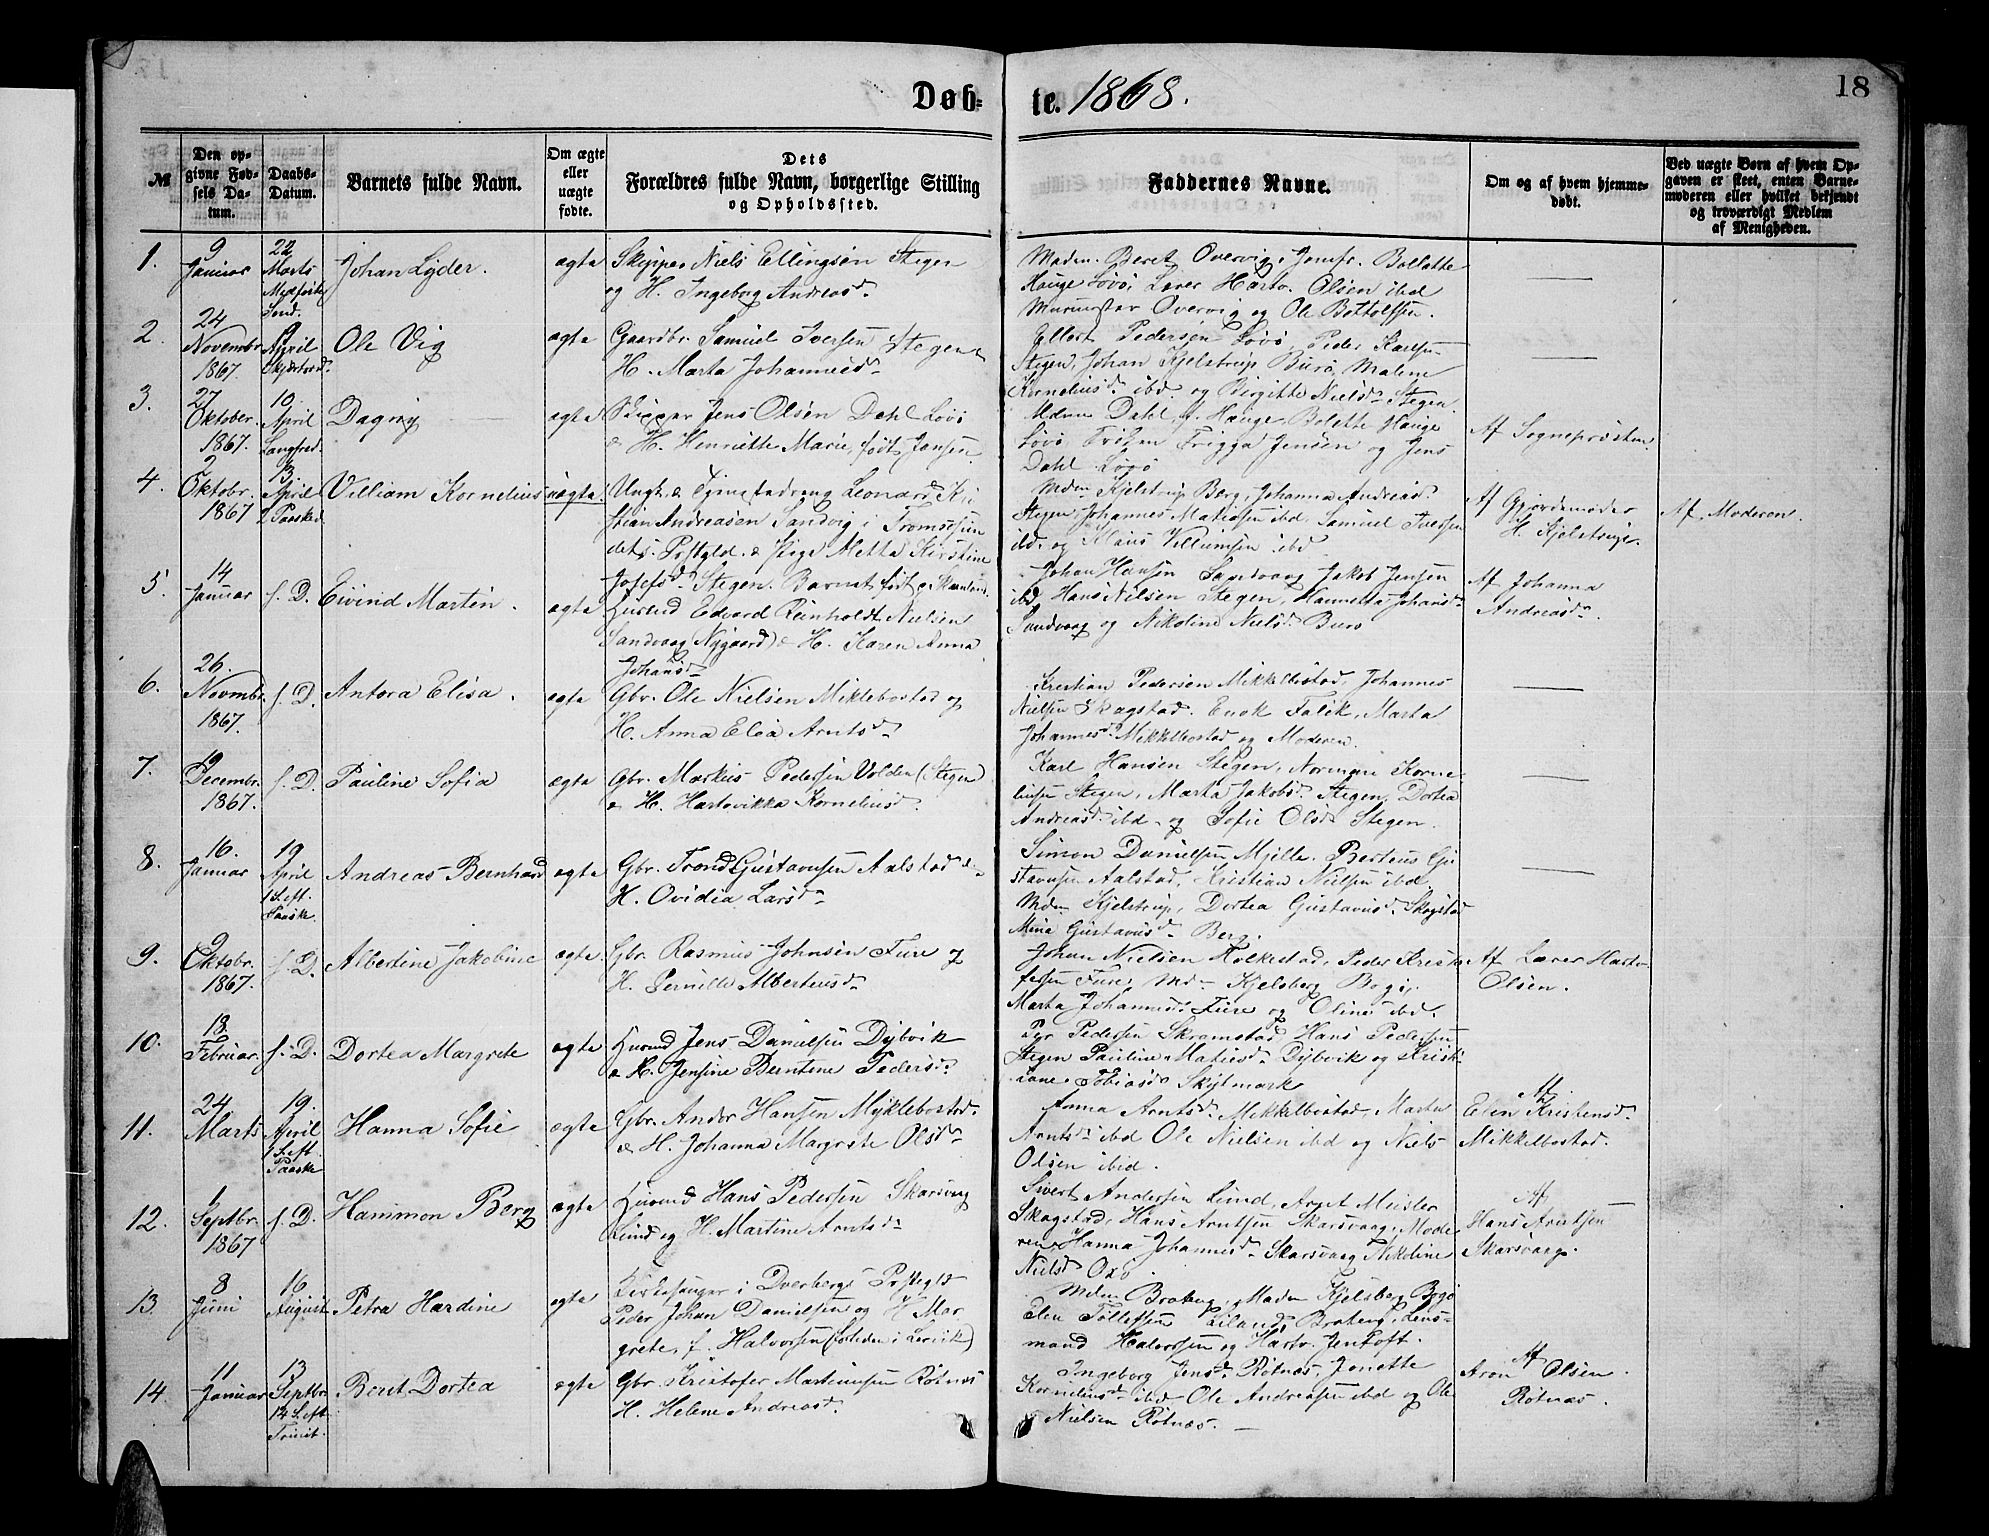 Døb-
te. 1868.
18
№
Den opgivne Fødsels Datum.
Daabs-Datum.
Barnets fulde Navn.
Om ægte eller uægte fødte.
Dets Forældres fulde Navn, borgerlige Stilling og Opholdssted.
Faddernes Navne.
Om og af hvem hjemmedøbt.
Ved uægte Børn af hvem Opgaven er skeet, enten Barnemoderen eller hvilket bekjendt og troværdigt Medlem af Menigheden.
1.
9 Januar
22 Marts
Johan Lyder.
ægte
Skipper Niels Ellingsen Stegen
og H. Ingeborg Andreasd.
Maden. Beret Overvig, Jomfr. Bollette
Hauge Løvø, Lærer Hartv. Olsen ibd
Overvig og Ole Bottolfsen.
2.
24 Novembr. 1867.
9 April Skjærtorsd.
Ole Vig
ægte
Gaardbr. Samuel Iversen Stegen
H. Marta Johannesd.
Ellert Pedersen Løvø, Peder Karlsen
Stegen, Johan Kjelstrup Burø, Malene
Korneliusd. ibd. og Birgitte Nielsd. Stegen.
3.
27 Oktober. 1867.
10. April Langfred.
Dagny
ægte
Skipper Jens Olsen Dahl Løvø
& H. Henriette Marie, født Jensen
Mdme Dahl f. Hauge, Bolette Hauge
Løvø, Frøken Frigga Jensen og Jens
Dahl Løvø
Af Sognepræsten
4.
2 Oktobr. 1867
13. April 2 Paasked.
Villiam Kornelius
uægte.
Ungk. & Tjenestedreng Leonard Kri
stian Andreasen Sandvig i Tromsøsun
dets Præstgld. & Pige Metta Kirstine
Josefsd. Stegen. Barnet født p. Skanland.
Mdm Kjelstrup Berg, Johanna Andreasd.
Stegen, Johannes Matiasen ibd. Samuel Iversen
ibd. og Klaus Villumsen ibd
Af Gjordemoder
H. Kjelstrup.
Af Moderen.
5.
14 Januar
s. D.
Eivind Martin.
ægte
Husmd Edvard Reinholdt Nielsen
Sandvaag Nygaard & H. Karen Anna
Johansd.
Johan Hansen Sandvaag Jakob Jensen
ibd, Hans Nilsen Stegen, Hannetta Johansd.
Sandvaag og Nikoline Nielsd. Burø
Af Johanna
Andreasd.
6.
26. Novembr. 1867.
s. D.
Antora Elisa.
ægte
Gbr. Ole Nielsen Miklebostad og
H. Anna Elea Arntsd.
Kristian Pedersen Mikkelbostad, Johannes
Nielsen Skagstad. Enok Falck, Marta
Johannesd. Mikkelbostad og Moderen.
7.
19 Decembr. 1867.
s. D.
Pauline Sofia
ægte
Gbr. Markus Pedersen Volden (Stegen)
& H. Hartvikka Kornelinsd.
Karl Hansen Stegen, Normann Korne-
liusen Stegen, Marta Jakobsd. Stegen, Dortea
Andreasd. ibd. og Sofie Olsd. Stegen.
8.
16. Januar
19. April 1 S. eft. Paaske.
Andreas Bernhard
ægte
Gbr. Trond Gustavsen Aalstad &
H. Ovidia Larsd.
Simon Danielsen Mjelle. Berteus Gu
stavsen Aalstad, Kristian Nielsen ibd.
Mdm Kjelstrup, Dortea Gustavsd. Skagstad
Mina Gustavsd. Berg.
9.
9 Oktobr. 1867.
s. D.
Albertine Jakobine
ægte
Gbr. Rasmus Johnsen Fure og
H. Pernille Albertusd.
Johan Nielsen Holkestad, Peder Kristo-
fersen Fure, Md. Kjelsberg Bogø,
Marta Johannesd. Fure og Oline ibd.
Af Lærer Hartv.
Olsen.
10.
18. Februar.
s. D.
Dortea Margrete
ægte
Husmd Jens Danielsen Dybvik
& H. Jensine Berntine Pedersd.
Pedersen Skromstad Hans Pedersen
Stegen Pauline Matiasd. Dybvik og Kristi-
ane Tobiasd. Skytmark
11.
24 Marts
19. April 1 S. eft. Paaske
Hanna Sofie
ægte
Gbr. Ander Hansen Myklebostad
& H. Johanna Margrete Olsd.
Anna Arntsd. Mikkelbostad, Marta
Arntsd. ibd Ole Nielsen ibd og Niels
Olsen ibid.
Af
Elen Kristensd.
Mikkelbostad.
12.
1 Septbr. 1867
s. D.
Hammon Berg
ægte
Husmd Hans Pedersen Skarsvaag
Lund og H. Martine Arntsd.
Sivert Andersen Lund, Meier
Skagstad, Hans Arntsen Skarsvaag, Mode
ren, Hanna Johannesd. Skarsvaag Nikoline
Nielsd.
Af
Hans Arntsen
Skarsvaag.
13.
8 Juni
16 August
Petra Hardine
ægte
Kirkesanger i Dverbergs Præstegld
Peder Johan Danielsen og H Mar
grete, f. Halvorsen (forleden i Lervik)
Mdm Brateng, Madm Kjelsberg Bogø
Elen Tollefsen Leiland, Brateng, Lens-
mand Halvorsen og Hartv. Jentoft.
14.
11 Januar
13 Septbr. 14 S. eft Trinit.
Berit Dortea
ægte
Gbr. Kristofer Martinusen Røtnæs
H. Helene Andreasd.
Ingeborg Jensd. Røtnæs. Jonette
Korneliusd. ibd Ole Andreasen ibd og Ole
Nielsen Røtnæs.
Af
Aron Olsen
Røtnæs.